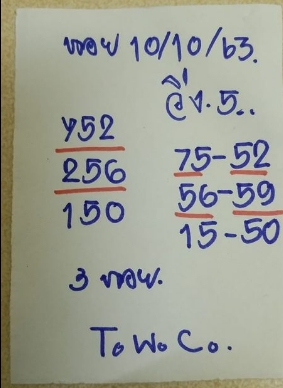 หอย 10/10/63.
วิ่ง.5..
752
256
150
75-52
56-59
15-50
3 หอย.
To Wo Co.